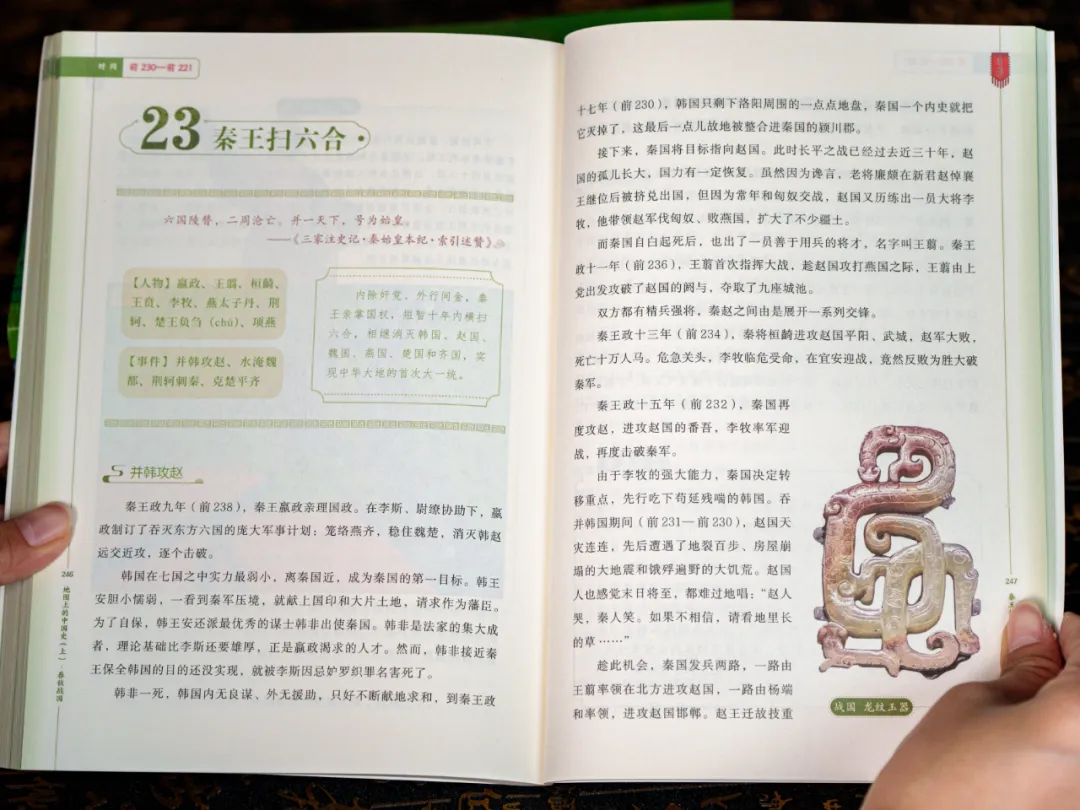 时间 前230—前221
23 秦王扫六合
六国陵替，二周沦亡。并一天下，号为始皇。
——《三家注史记·秦始皇本纪·索引述赞》
【人物】嬴政、王翦、桓齮、
王贲、李牧、燕太子丹、荆
轲、楚王负刍（chú）、项燕
【事件】并韩攻赵、水淹魏
都、荆轲刺秦、克楚平齐
内除奸党，外行间金，秦
王亲掌国权，短智十年内横扫
六合，相继消灭韩国、赵国、
魏国、燕国、楚国和齐国，实
现中华大地的首次大一统。
并韩攻赵
秦王政九年（前238），秦王嬴政亲理国政。在李斯、尉缭协助下，嬴
政制订了吞灭东方六国的庞大军事计划：笼络燕齐，稳住魏楚，消灭韩赵
远交近攻，逐个击破。
韩国在七国之中实力最弱小，离秦国近，成为秦国的第一目标。韩王
安胆小懦弱，一看到秦军压境，就献上国印和大片土地，请求作为藩臣。
为了自保，韩王安还派最优秀的谋士韩非出使秦国。韩非是法家的集大成
者，理论基础比李斯还要雄厚，正是嬴政渴求的人才。然而，韩非接近秦
王保全韩国的目的还没实现，就被李斯因忌妒罗织罪名害死了。
韩非一死，韩国内无良谋、外无援助，只好不断献地求和，到秦王政
246
地图上的中国史（上）·春秋战国
十七年（前230），韩国只剩下洛阳周围的一点点地盘，秦国一个内史就把
它灭掉了，这最后一点儿故地被整合进秦国的颍川郡。
接下来，秦国将目标指向赵国。此时长平之战已经过去近三十年，赵
国的孤儿长大，国力有一定恢复。虽然因为谗言，老将廉颇在新君赵悼襄
王继位后被挤兑出国，但因为常年和匈奴交战，赵国又历练出一员大将李
牧，他带领赵军伐匈奴、败燕国，扩大了不少疆土。
而秦国自白起死后，也出了一员善于用兵的将才，名字叫王翦。秦王
政十一年（前236），王翦首次指挥大战，趁赵国攻打燕国之际，王翦由上
党出发攻破了赵国的阏与，夺取了九座城池。
双方都有精兵强将，秦赵之间由是展开一系列交锋。
秦王政十三年（前234），秦将桓齮进攻赵国平阳、武城，赵军大败，
死亡十万人马。危急关头，李牧临危受命，在宜安迎战，竟然反败为胜大破
秦军。
秦王政十五年（前232），秦国再
度攻赵，进攻赵国的番吾，李牧率军迎
战，再度击破秦军。
由于李牧的强大能力，秦国决定转
移重点，先行吃下苟延残喘的韩国。吞
并韩国期间（前231—前230），赵国天
灾连连，先后遭遇了地裂百步、房屋崩
塌的大地震和饿殍遍野的大饥荒。赵国
人也感觉末日将至，都难过地唱：“赵人
哭，秦人笑。如果不相信，请看地里长
的草……”
趁此机会，秦国发兵两路，一路由
王翦率领在北方进攻赵国，一路由杨端
和率领，进攻赵国邯郸。赵王迁故技重
战国 龙纹玉器
247